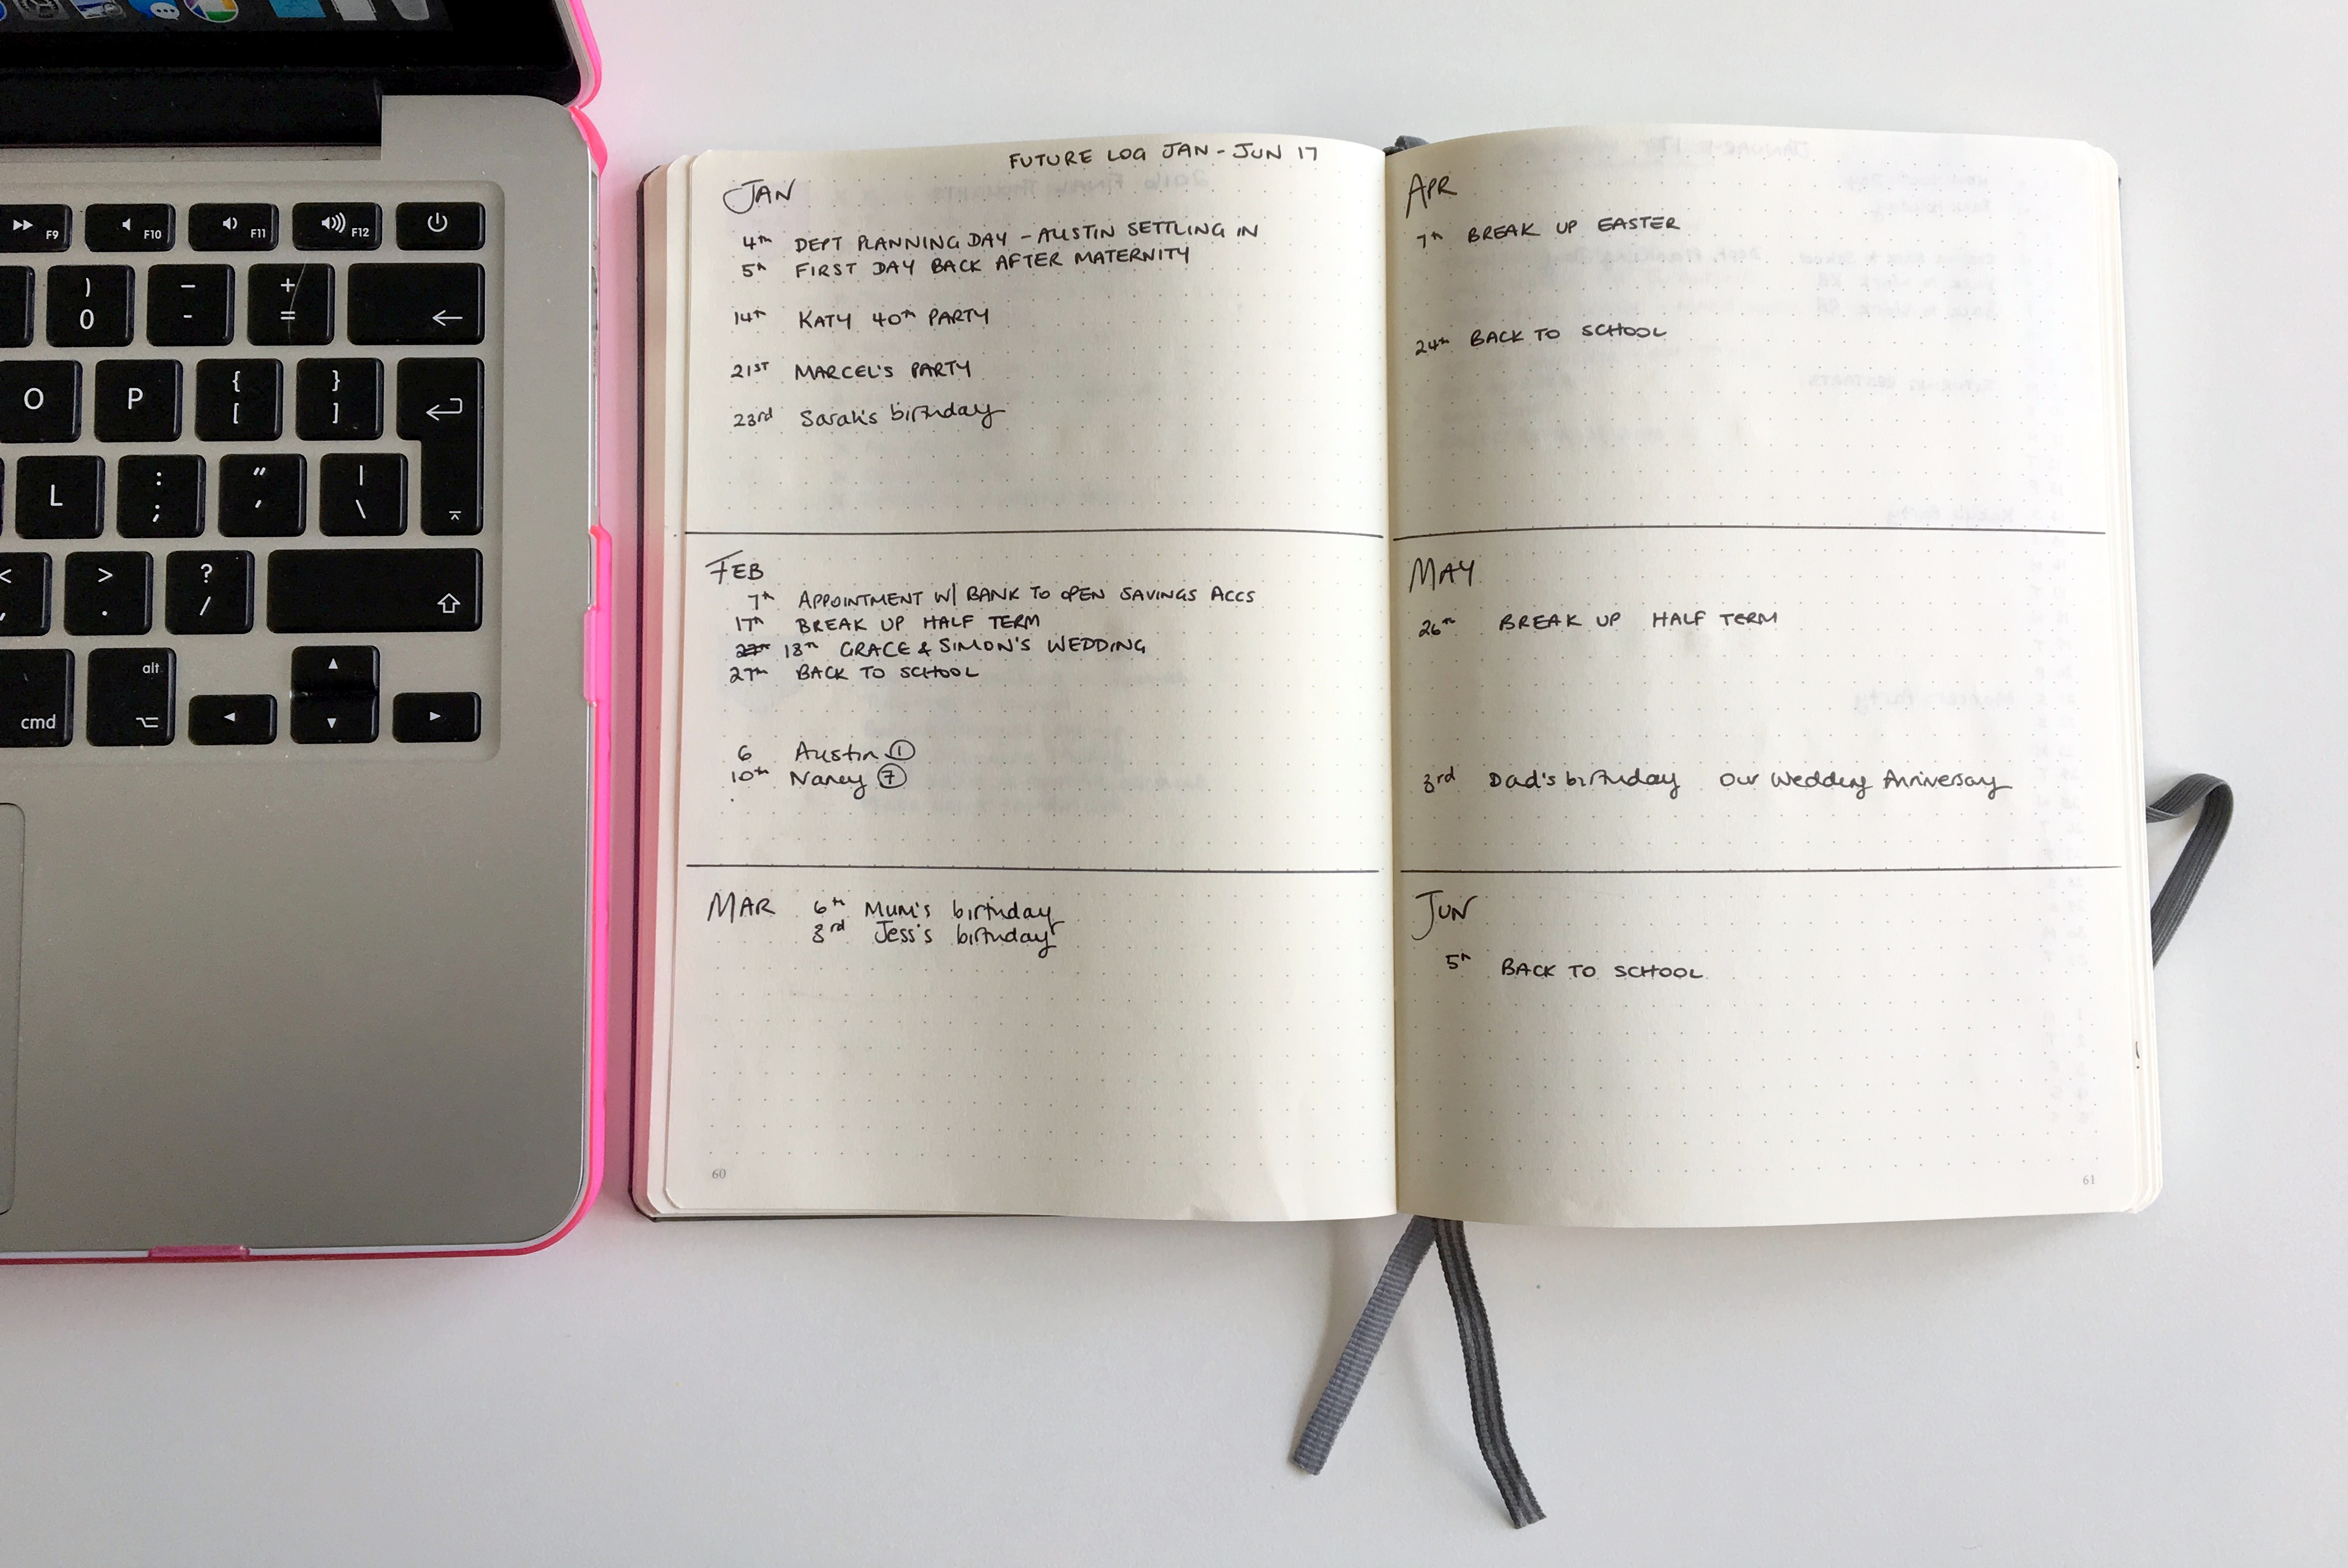 F9
F10
F11
F12
)
0
_
-
+
=
O
P
{
[
}
]
L
:
;
"
'
|
\
<
,
>
.
?
/
cmd
alt
FUTURE LOG JAN - JUN 17
JAN
4th DEPT PLANNING DAY - AUSTIN SETTLING IN
5th FIRST DAY BACK AFTER MATERNITY
14th KATY 40th PARTY
21ST MARCEL'S PARTY
23rd Sarah's birthday
FEB
7th APPOINTMENT W/ BANK TO OPEN SAVINGS ACCS
17th BREAK UP HALF TERM
18th GRACE & SIMON'S WEDDING
27th BACK TO SCHOOL
6 Austin 1
10th Nancy 7
MAR 6th Mum's birthday
3rd Jess's birthday
60
APR
7th BREAK UP EASTER
24th BACK TO SCHOOL
MAY
26th BREAK UP HALF TERM
3rd Dad's birthday Our Wedding Anniversay
JUN
5th BACK TO SCHOOL
61